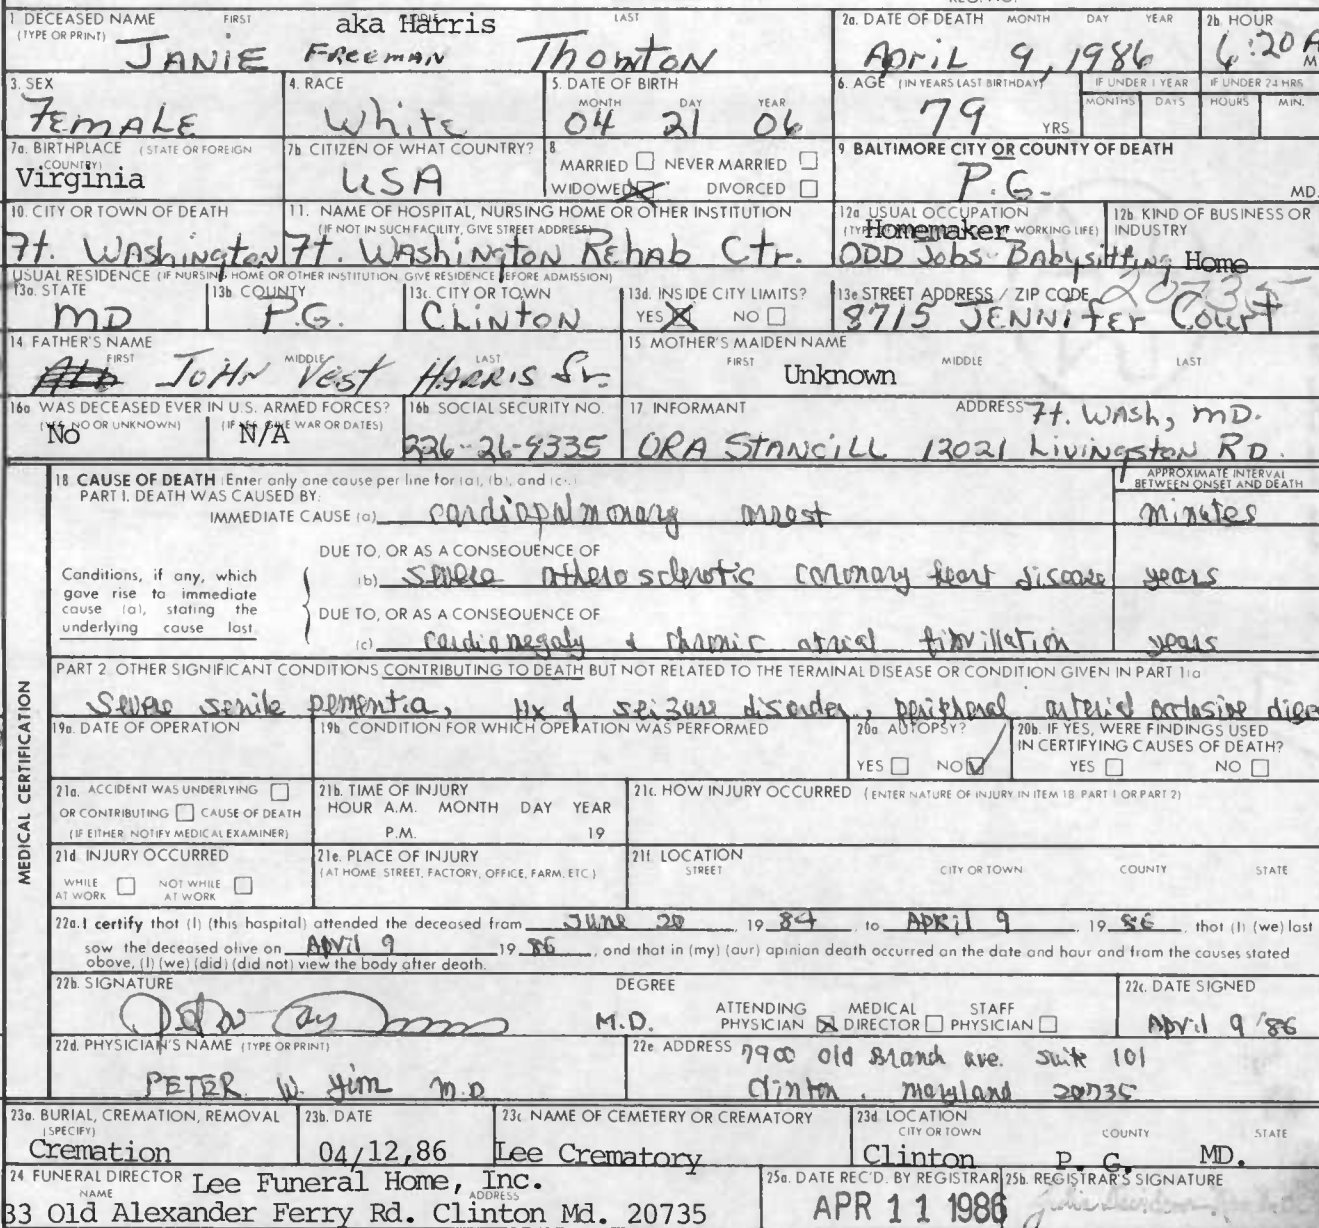 1 DECEASED NAME FIRST aka Harris LAST
(TYPE OR PRINT) JANIE FREEMAN Thornton
2a. DATE OF DEATH MONTH DAY YEAR
APRIL 9, 1986
2b HOUR
6:20 A
M
3. SEX
FEMALE
4. RACE
White
5. DATE OF BIRTH
MONTH DAY YEAR
04 21 06
6. AGE (IN YEARS LAST BIRTHDAY)
79 YRS
IF UNDER 1 YEAR
MONTHS DAYS
IF UNDER 24 HRS
HOURS MIN.
7a. BIRTHPLACE (STATE OR FOREIGN
COUNTRY)
Virginia
7b CITIZEN OF WHAT COUNTRY?
USA
8
MARRIED NEVER MARRIED
WIDOWED DIVORCED
9 BALTIMORE CITY OR COUNTY OF DEATH
P.G. MD.
10. CITY OR TOWN OF DEATH
Ft. WASHINGTON
11. NAME OF HOSPITAL, NURSING HOME OR OTHER INSTITUTION
(IF NOT IN SUCH FACILITY, GIVE STREET ADDRESS)
Ft. WASHINGTON REHAB CTR.
12a USUAL OCCUPATION
Homemaker WORKING LIFE)
ODD Jobs-Babysitting
12b. KIND OF BUSINESS OR
INDUSTRY
Home
USUAL RESIDENCE (IF NURSING HOME OR OTHER INSTITUTION GIVE RESIDENCE BEFORE ADMISSION)
13a. STATE
MD
13b COUNTY
P.G.
13c. CITY OR TOWN
CLINTON
13d. INSIDE CITY LIMITS?
YES NO
13e STREET ADDRESS / ZIP CODE 20735
8715 JENNIFER Court
14 FATHER'S NAME
FIRST MIDDLE LAST
JOHN Vest HARRIS Sr.
15 MOTHER'S MAIDEN NAME
FIRST MIDDLE LAST
Unknown
16a WAS DECEASED EVER IN U.S. ARMED FORCES?
(YES NO OR UNKNOWN) (IF YES GIVE WAR OR DATES)
No N/A
16b SOCIAL SECURITY NO.
226-26-9335
17. INFORMANT ADDRESS Ft. WASH, MD.
ORA STANCILL 13021 Livingston RD.
18 CAUSE OF DEATH (Enter only one cause per line for (a), (b), and (c).)
APPROXIMATE INTERVAL
BETWEEN ONSET AND DEATH
PART I. DEATH WAS CAUSED BY:
IMMEDIATE CAUSE (a) cardiopulmonary arrest minutes
DUE TO, OR AS A CONSEQUENCE OF
(b) severe atherosclerotic coronary heart disease years
Conditions, if any, which
gave rise to immediate
cause (a), stating the
underlying cause last.
DUE TO, OR AS A CONSEQUENCE OF
(c) cardiomegaly & chronic atrial fibrillation years
PART 2 OTHER SIGNIFICANT CONDITIONS CONTRIBUTING TO DEATH BUT NOT RELATED TO THE TERMINAL DISEASE OR CONDITION GIVEN IN PART 1(a
Severe senile dementia, Hx of seizure disorder, peripheral arterial occlusive
MEDICAL CERTIFICATION
19a. DATE OF OPERATION
19b CONDITION FOR WHICH OPERATION WAS PERFORMED
20a AUTOPSY?
YES NO
20b. IF YES, WERE FINDINGS USED
IN CERTIFYING CAUSES OF DEATH?
YES NO
21a. ACCIDENT WAS UNDERLYING
OR CONTRIBUTING CAUSE OF DEATH
(IF EITHER NOTIFY MEDICAL EXAMINER)
21b. TIME OF INJURY
HOUR A.M. MONTH DAY YEAR
P.M. 19
21c. HOW INJURY OCCURRED (ENTER NATURE OF INJURY IN ITEM 18 PART 1 OR PART 2)
21d. INJURY OCCURRED
WHILE NOT WHILE
AT WORK AT WORK
21e. PLACE OF INJURY
(AT HOME STREET, FACTORY, OFFICE, FARM, ETC)
21f. LOCATION
STREET CITY OR TOWN COUNTY STATE
22a. I certify that (I) (this hospital) attended the deceased from June 20, 19 84, to APRIL 9 19 86, that (I) (we) last
saw the deceased alive on April 9 19 86, and that in (my) (our) opinion death occurred on the date and hour and from the causes stated
above, (I) (we) (did) (did not) view the body after death.
22b. SIGNATURE DEGREE
M.D.
ATTENDING MEDICAL STAFF
PHYSICIAN DIRECTOR PHYSICIAN
22c. DATE SIGNED
April 9 '86
22d. PHYSICIAN'S NAME (TYPE OR PRINT)
PETER W. Yim M.D
22e ADDRESS 7900 Old Branch ave. Suite 101
Clinton, Maryland 20735
23a. BURIAL, CREMATION, REMOVAL
(SPECIFY)
Cremation
23b. DATE
04/12,86
23c. NAME OF CEMETERY OR CREMATORY
Lee Crematory
23d LOCATION
CITY OR TOWN COUNTY STATE
Clinton P. G. MD.
24 FUNERAL DIRECTOR Lee Funeral Home, Inc.
NAME ADDRESS
33 Old Alexander Ferry Rd. Clinton Md. 20735
25a. DATE REC'D. BY REGISTRAR
APR 11 1986
25b. REGISTRAR'S SIGNATURE